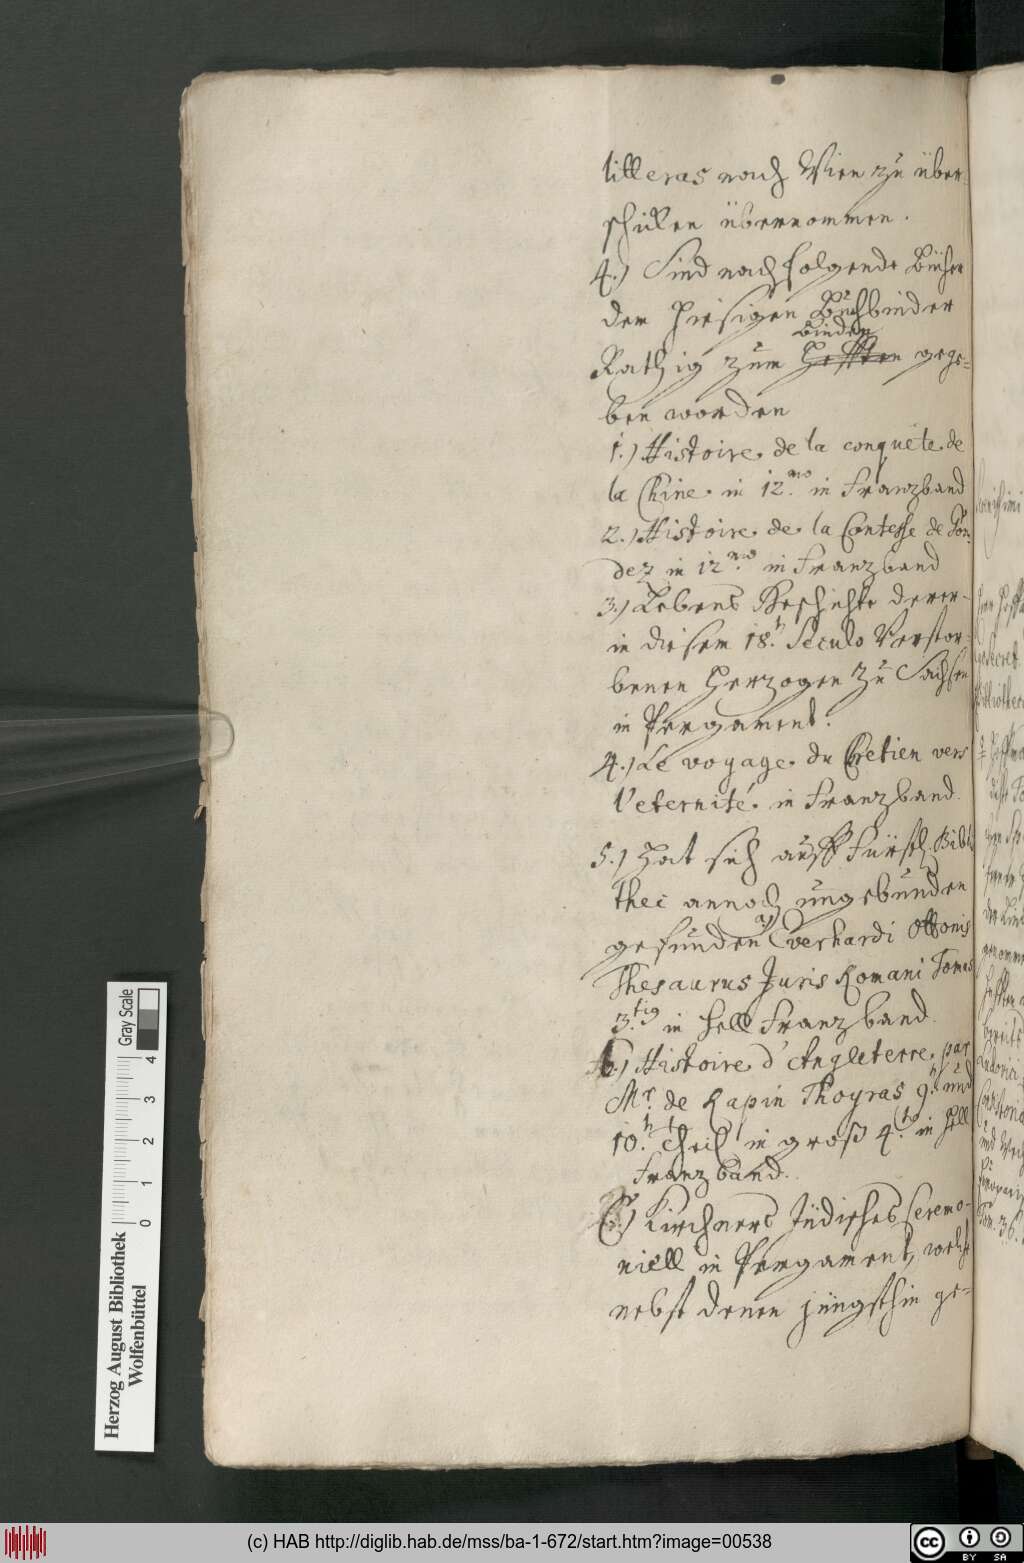 litteras nach Wien zu über-
schicken übernommen.
4.) Sind nachfolgende Bücher
dem hiesigen Buchbinder
binden
Rathig zum Hefften gege-
ben worden
1.) Histoire de la conquête de
la Chine in 12.mo in Franzband
2.) Histoire de la Contesse de Gon-
dez in 12.mo in Franzband
3.) Lebens Geschichte derer
in diesem 18.n Seculo Verstor-
benen Herzogen zu Sachsen
in Pergament.
4.) Le voyage du Chretien vers
l'eternité in Franzband.
5.) Hat sich auff Fürstl. Biblio
thec annoch ungebunden
gefunden a) Everhardi Ottonis
Thesaurus Juris Romani Tomus
3.tig in hell Franzband.
b.) Histoire d'Angleterre par
Mr. de Rapin Thoyras 9.n und
10.n theil in groß 4.to in hell
Franzband.
C.) Kirchners Jüdisches Ceremo-
niell in Pergament, welche
nebst denen jüngsthin ge-
Herzog August Bibliothek
Wolfenbüttel
0 1 2 3 4
Gray Scale
(c) HAB http://diglib.hab.de/mss/ba-1-672/start.htm?image=00538
cc BY SA